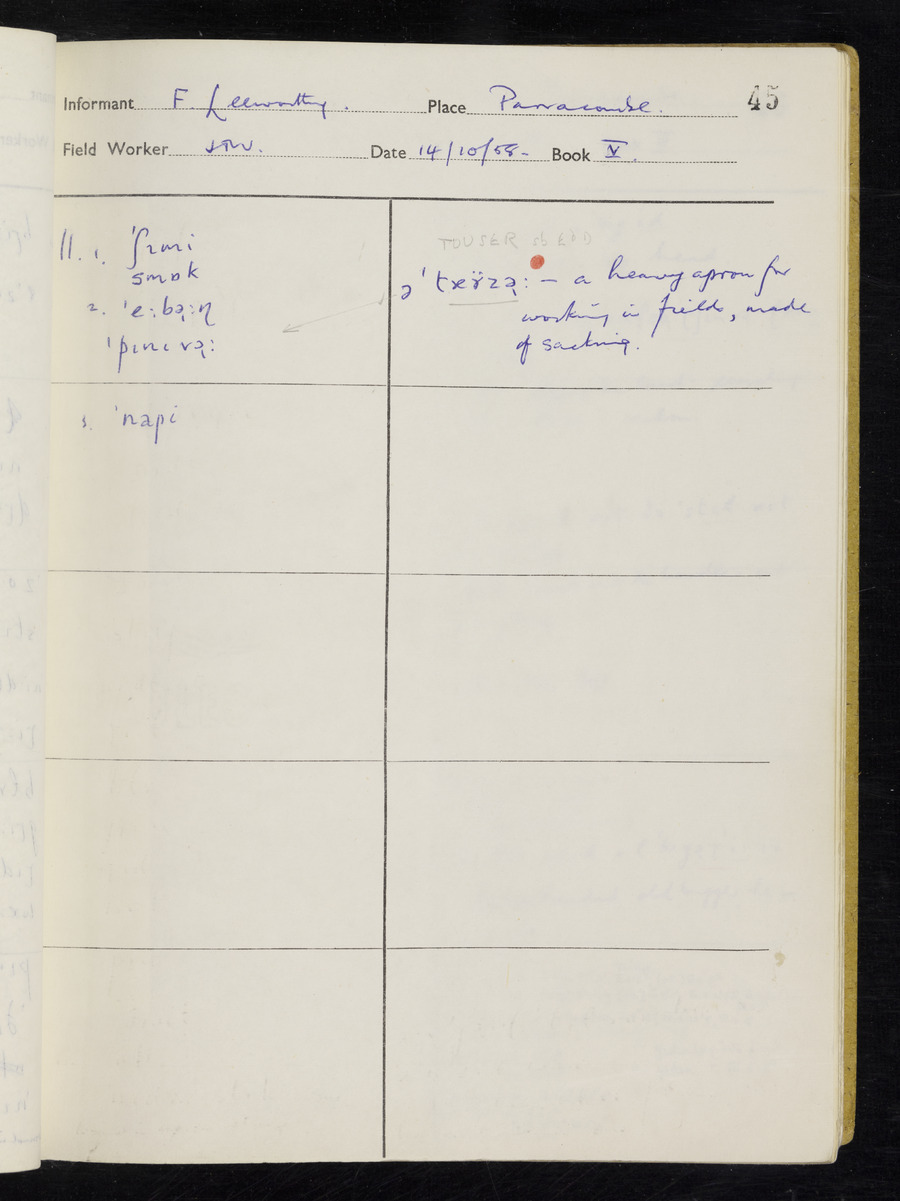 45
Informant F. Leeworthy. Place Parracombe.
Field Worker Date 14/10/58- Book V.
11. 1. ˈʃɪmi
smɒk
2. ˈeːbɚːn̩
ˈpɪnɪvɚː
3. ˈnapi
TOUSER sb EDD
əˈ tɶʏ̈zɚː – a heavy apron for
working in fields, made
of sacking.